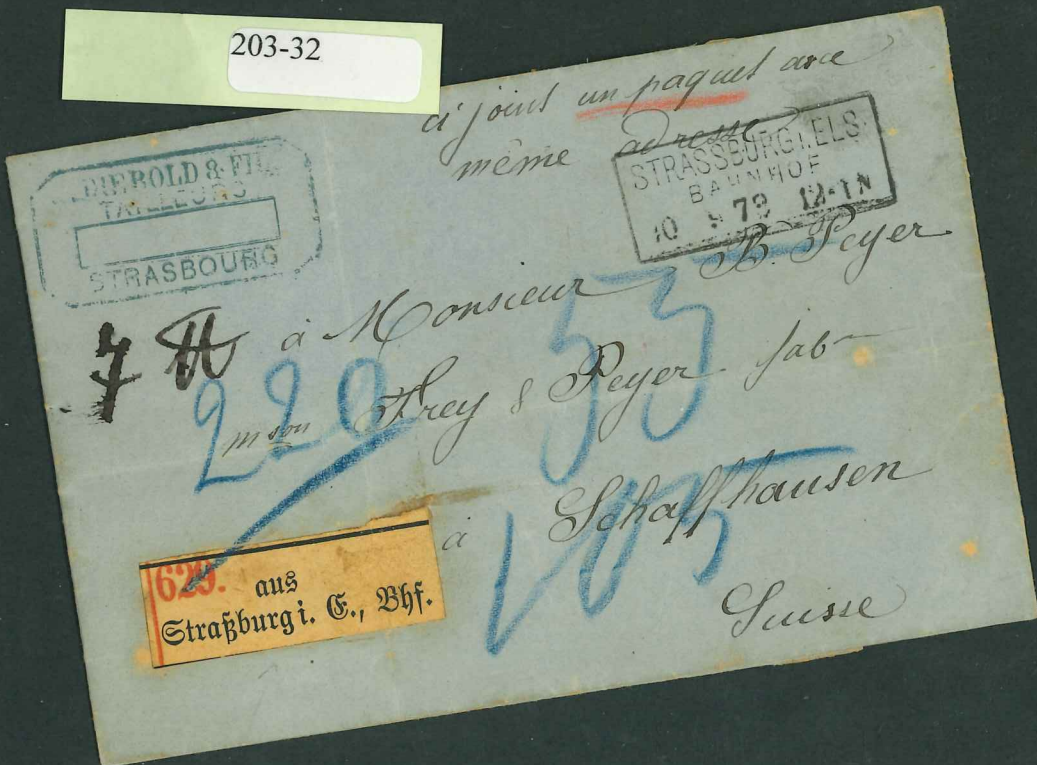 203-32
ci joint un paquet
même adresse
DIEBOLD & FILS
TAILLEURS
STRASBOURG
STRASSBURG I. ELS.
BAHNHOF
10 9 72 12-1N
7 ℔
à Monsieur B. Peyer
mson Frey & Peyer fab
à Schaffhausen
Suisse
220
53
103
629. aus
Straßburg i. E., Bhf.